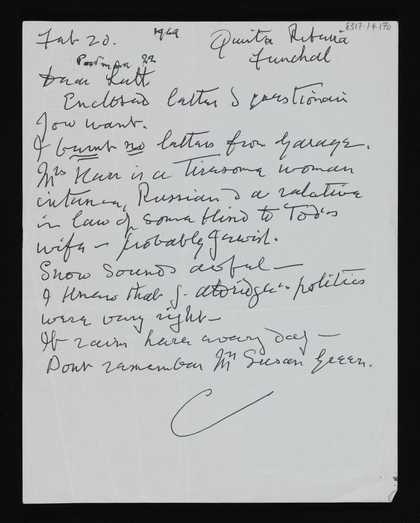 8317.1.4.170
Feb 20. 1969 Quinta Ribeira
Postmark 22 Funchal
Dear Lutt
Enclosed letter & questionair
you want.
I burnt no letters from Garage.
Mrs Harr is a Tiresome woman
intense, Russian & a relative
in law of some kind to Tod's
wife – probably Jewish.
Snow sounds awful –
I knew that J. Aldridge's politics
were very right –
It rains here every day –
Dont remember Mrs Susan Green.
C